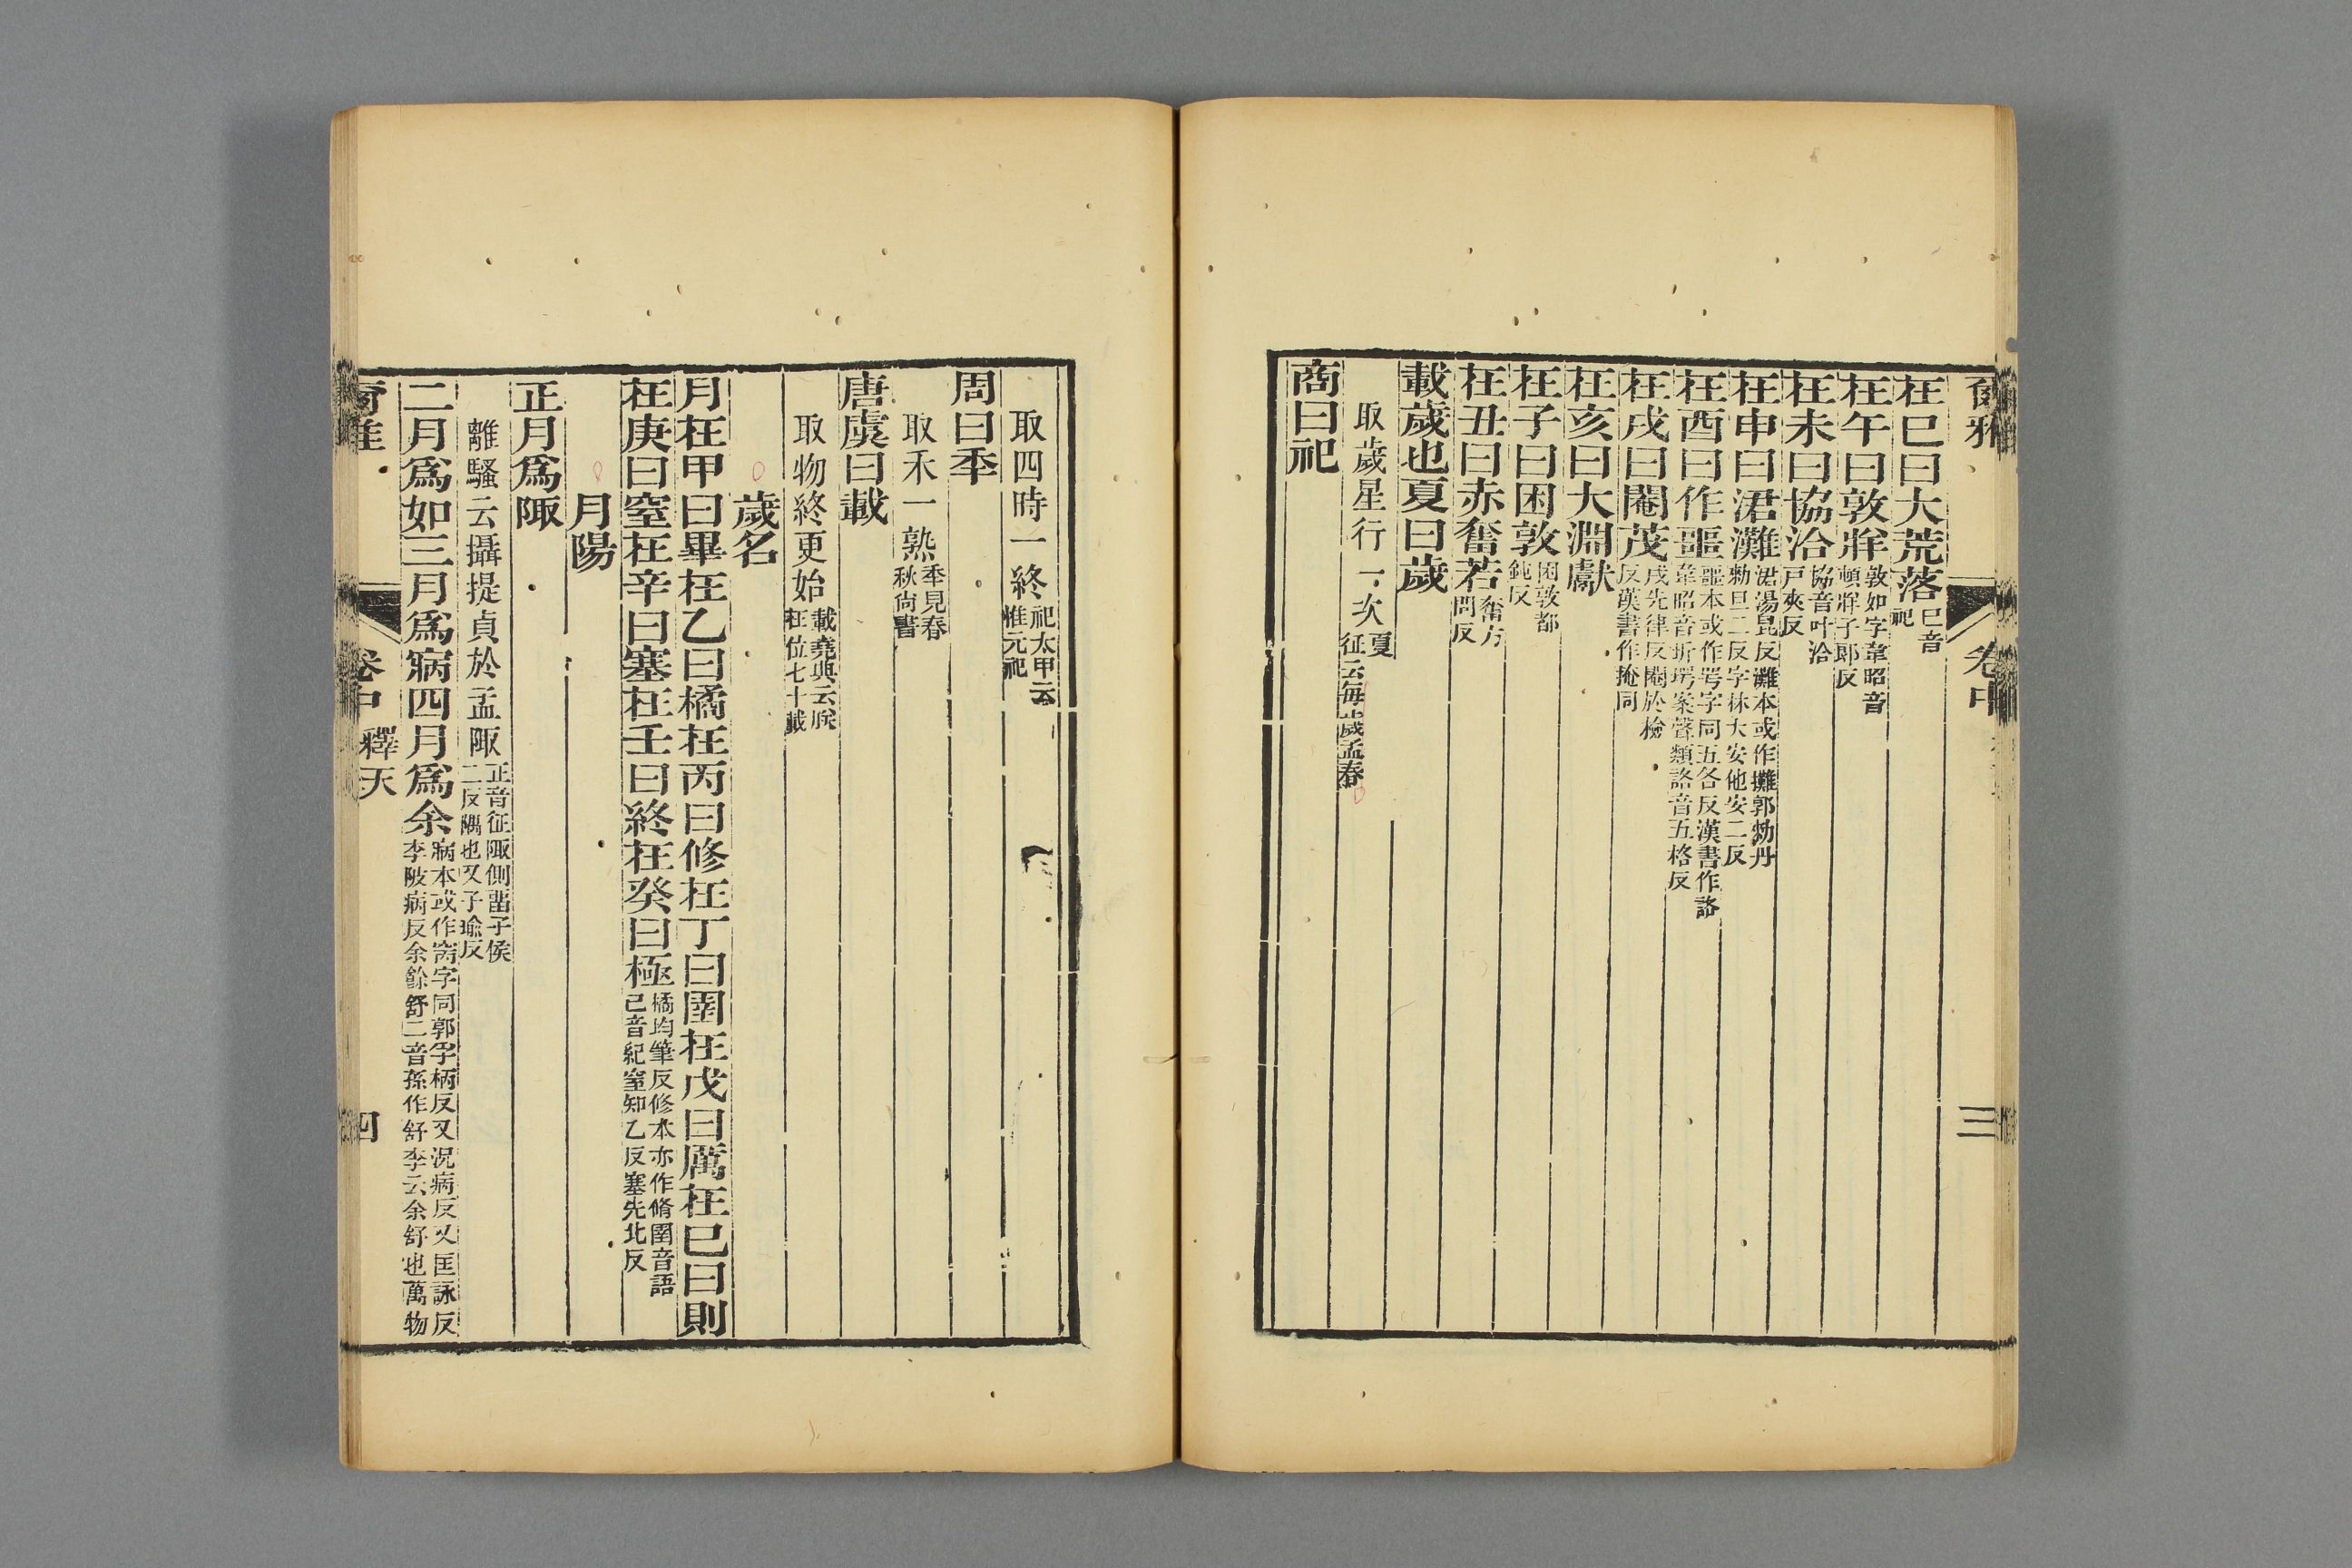 爾雅 卷中 三
在巳曰大荒落巳音祀
在午曰敦牂敦如字韋昭音頓牂子郎反
在未曰協洽協音叶洽戸夾反
在申曰涒灘涒湯昆反灘本或作攤郭勑丹勑旦二反字林大安他安二反
在酉曰作噩噩本或作咢字同五各反漢書作詻韋昭音圻堮案聲類詻音五格反
在戌曰閹茂戌先律反閹於檢反漢書作掩同
在亥曰大淵獻
在子曰困敦困敦都鈍反
在丑曰赤奮若奮方問反
載歲也夏曰歲
取歲星行一次夏征云每歲孟春
商曰祀
取四時一終祀太甲云惟元祀
周曰秊
取禾一熟秊見春秋尙書
唐虞曰載
取物終更始載堯典云朕在位七十載
歲名
月在甲曰畢在乙曰橘在丙曰修在丁曰圉在戊曰厲在己曰則
在庚曰窒在辛曰塞在壬曰終在癸曰極橘均筆反修本亦作脩圉音語己音紀窒知乙反塞先北反
月陽
正月爲陬
離騷云攝提貞於孟陬正音征陬側㽞子侯二反隅也又子瑜反
二月爲如三月爲寎四月爲余寎本或作窉字同郭孚柄反又況病反又匡詠反李陂病反余餘舒二音孫作舒李云余舒也萬物
爾雅 卷中 釋天 四